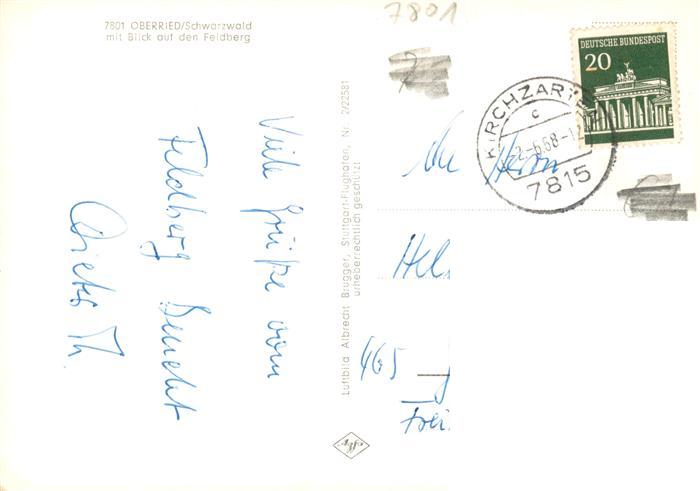 7801 OBERRIED/Schwarzwald
mit Blick auf den Feldberg
7801
DEUTSCHE BUNDESPOST
20
KIRCHZARTEN
c
-6.68-12
7815
Viele Grüße vom
Feldberg
Luftbild Albrecht Brugger, Stuttgart-Flughafen, Nr. 2/22581
urheberrechtlich geschützt
Agfa
Herrn
Hel
465
Frei